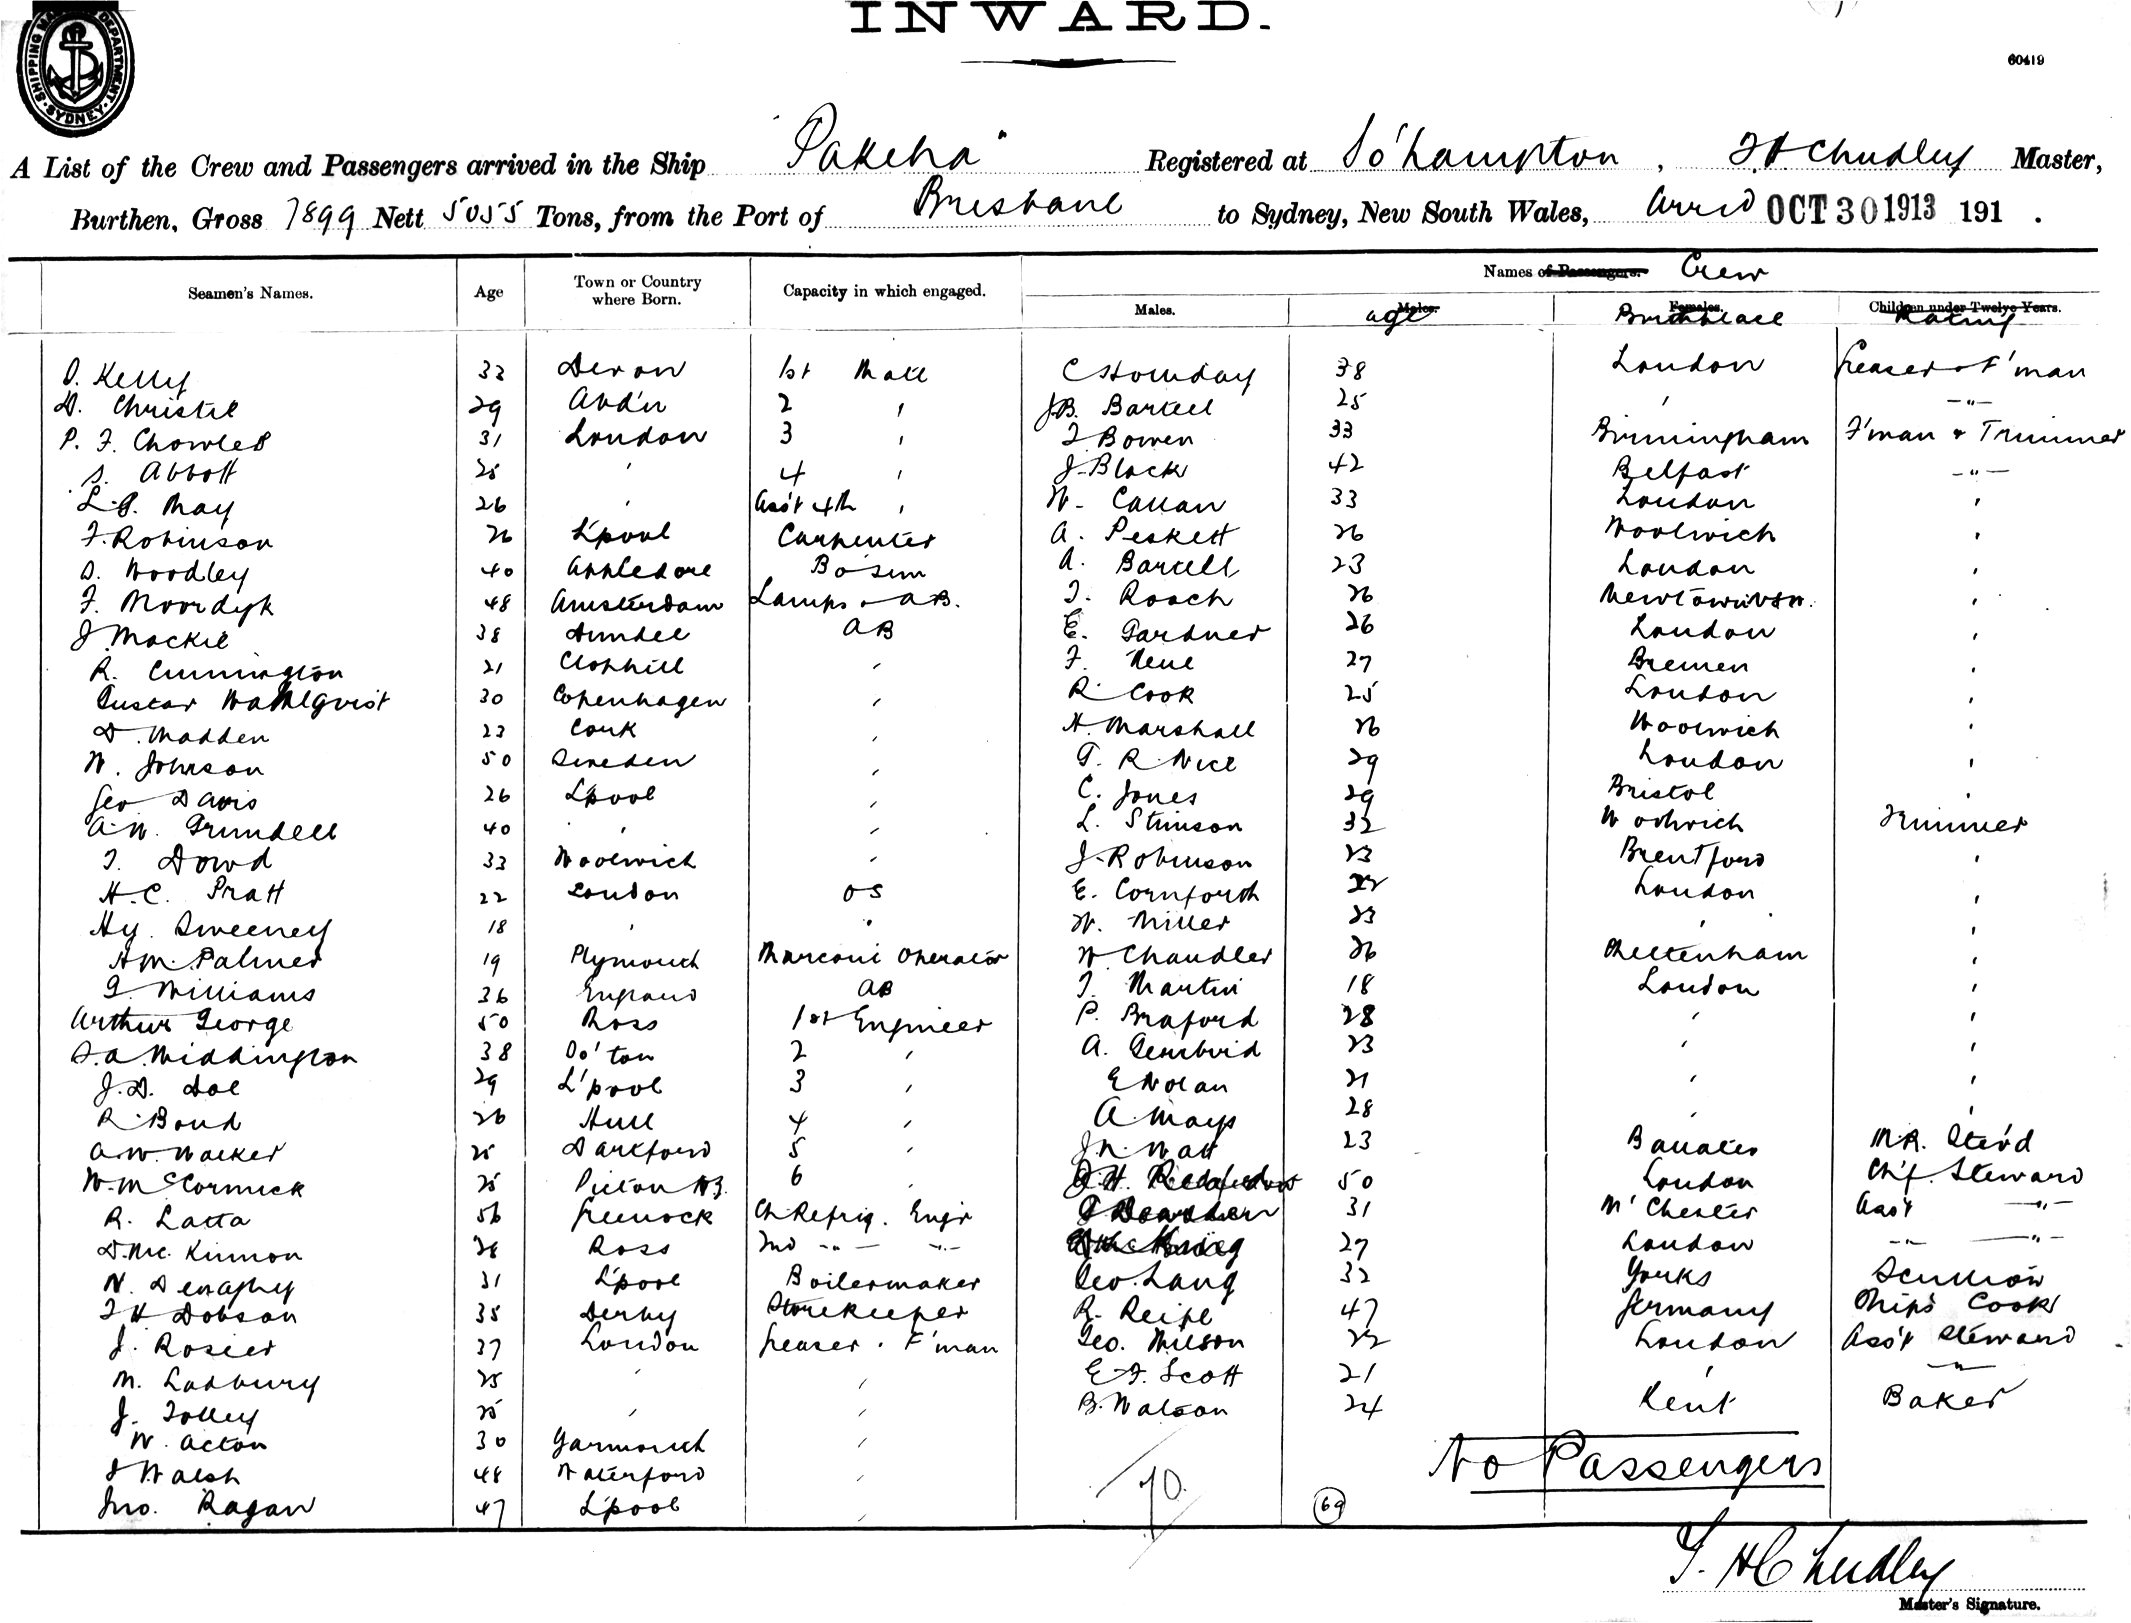 INWARD.
60419
SHIPPING MASTER'S DEPARTMENT SYDNEY
A List of the Crew and Passengers arrived in the Ship "Pakeha" Registered at So'hampton, F.H Chudley Master,
Burthen, Gross 7899 Nett 5055 Tons, from the Port of Brisbane to Sydney, New South Wales, Arrd OCT 30 1913 191 .
Seamen's Names. Age Town or Country where Born. Capacity in which engaged. Names of Passengers. Crew
Males. Males. age Females. Birthplace Children under Twelve Years. Rating
D. Kelly 33 Devon 1st Mate C Hornday 38 London Greaser & F'man
D. Christie 29 Abd'n 2 ' J.B. Bartell 25 ' -"-
P. F. Chowles 31 London 3 ' T Bowen 33 Birmingham F'man & Trimmer
S. Abbott 25 ' 4 ' J. Black 42 Belfast -"-
L.G. May 26 ' Ass't 4th ' W. Callan 33 London '
F. Robinson 26 L'pool Carpenter A. Peskett 26 Woolwich '
D. Woodley 40 Appledore Bo'sun A. Bartell 23 London '
F. Moordyk 48 Amsterdam Lamps & AB. T. Roach 26 '
J Mackie 38 Dundee AB E. Gardner 26 London '
R. Cunnington 21 Clophill ' F. Neue 27 Bremen '
Gustav Wahlqvist 30 Copenhagen ' R. Cook 25 London '
D. Madden 23 Cork ' H. Marshall 26 Woolwich '
W. Johnson 50 Sweden ' G. R. Nice 29 London '
Geo Davis 26 L'pool ' C. Jones 29 Bristol '
A.W. Grundell 40 ' ' L. Stimson 32 Woolwich Trimmer
T. Dowd 33 Woolwich ' J. Robinson 23 Brentford '
H.C. Pratt 22 London OS E. Cornforth 22 London '
Hy. Sweeney 18 ' " W. Miller 23 ' '
H.M. Palmer 19 Plymouth Marconi Operator W Chandler 26 Cheltenham '
G. Williams 36 England AB T. Martin 18 London '
Arthur George 50 Ross 1st Engineer P. Braford 28 ' '
S.A. Widdington 38 So'ton 2 ' A. 23 ' '
J.D. Doe 29 L'pool 3 ' E Nolan 21 ' '
R. Bond 26 Hull 4 ' A. Mays 28 ' '
A.W. Walker 25 Dartford 5 ' J.W. Watt 23 MR. Stew'd
W. McCormick 25 Picton NZ. 6 ' 50 London Ch'f. Steward
R. Latta 56 Greenock Ch Refrig. Engr 31 M'Chester Ass't -"-
D. Mc. Kinnon 28 Ross 2nd -"- -"- 27 London -"- -"-
N. Denaghy 31 L'pool Boilermaker Geo. Lang 32 Yorks Scullion
F H Dobson 35 Derby Storekeeper R. Reipe 47 Germany Ship's Cook
J. Rosier 37 London Greaser & F'man Geo. Wilson 22 London Ass't Steward
M. Ladbury 25 ' ' E F. Scott 21 ' -"-
J. Tolley 25 ' ' B. Watson 24 Kent Baker
W. Acton 30 Yarmouth '
J Walsh 48 Waterford ' No Passengers
Jno. Ragan 47 L'pool ' 70. 69
F. H Chudley
Master's Signature.